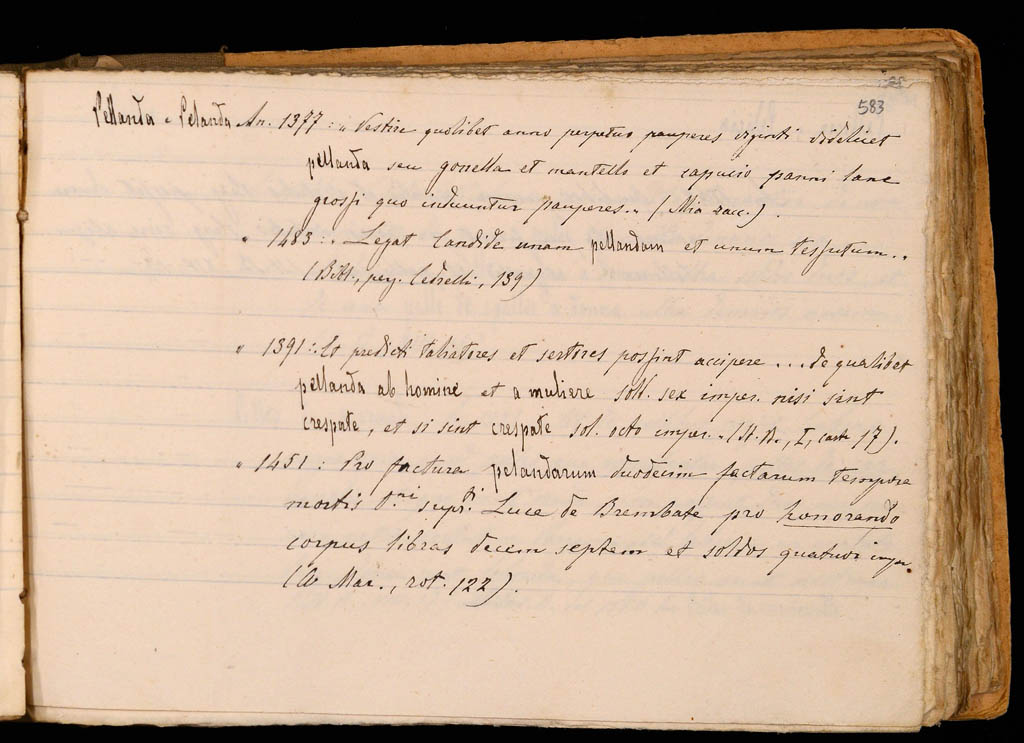 583
Pellanda e Pelanda An. 1377 : « Vestire quolibet anno perpetuo pauperes viginti videlicet
pellanda seu gonella et mantello et capucio panni lane
grossi quo induuntur pauperes. » (Mia zacc.).
" 1483 : « Legat Candide unam pellandam et unum tessutum. »
(Bibl., perg. Cedrelli, 139)
" 1391 : Et predicti taliatores et sertores possint accipere ... de qualibet
pellanda ab homine et a muliere soll. sex imper. nisi sint
crespate, et si sint crespate sol. octo imper. » (St. B., I, cart. 17).
" 1451 : Pro factura pelandarum duodecim factarum tempore
mortis d.ni supr.ti Luce de Brembate pro honorando
corpus libras decem septem et soldos quatuor imper.
( Mar., rot. 122).